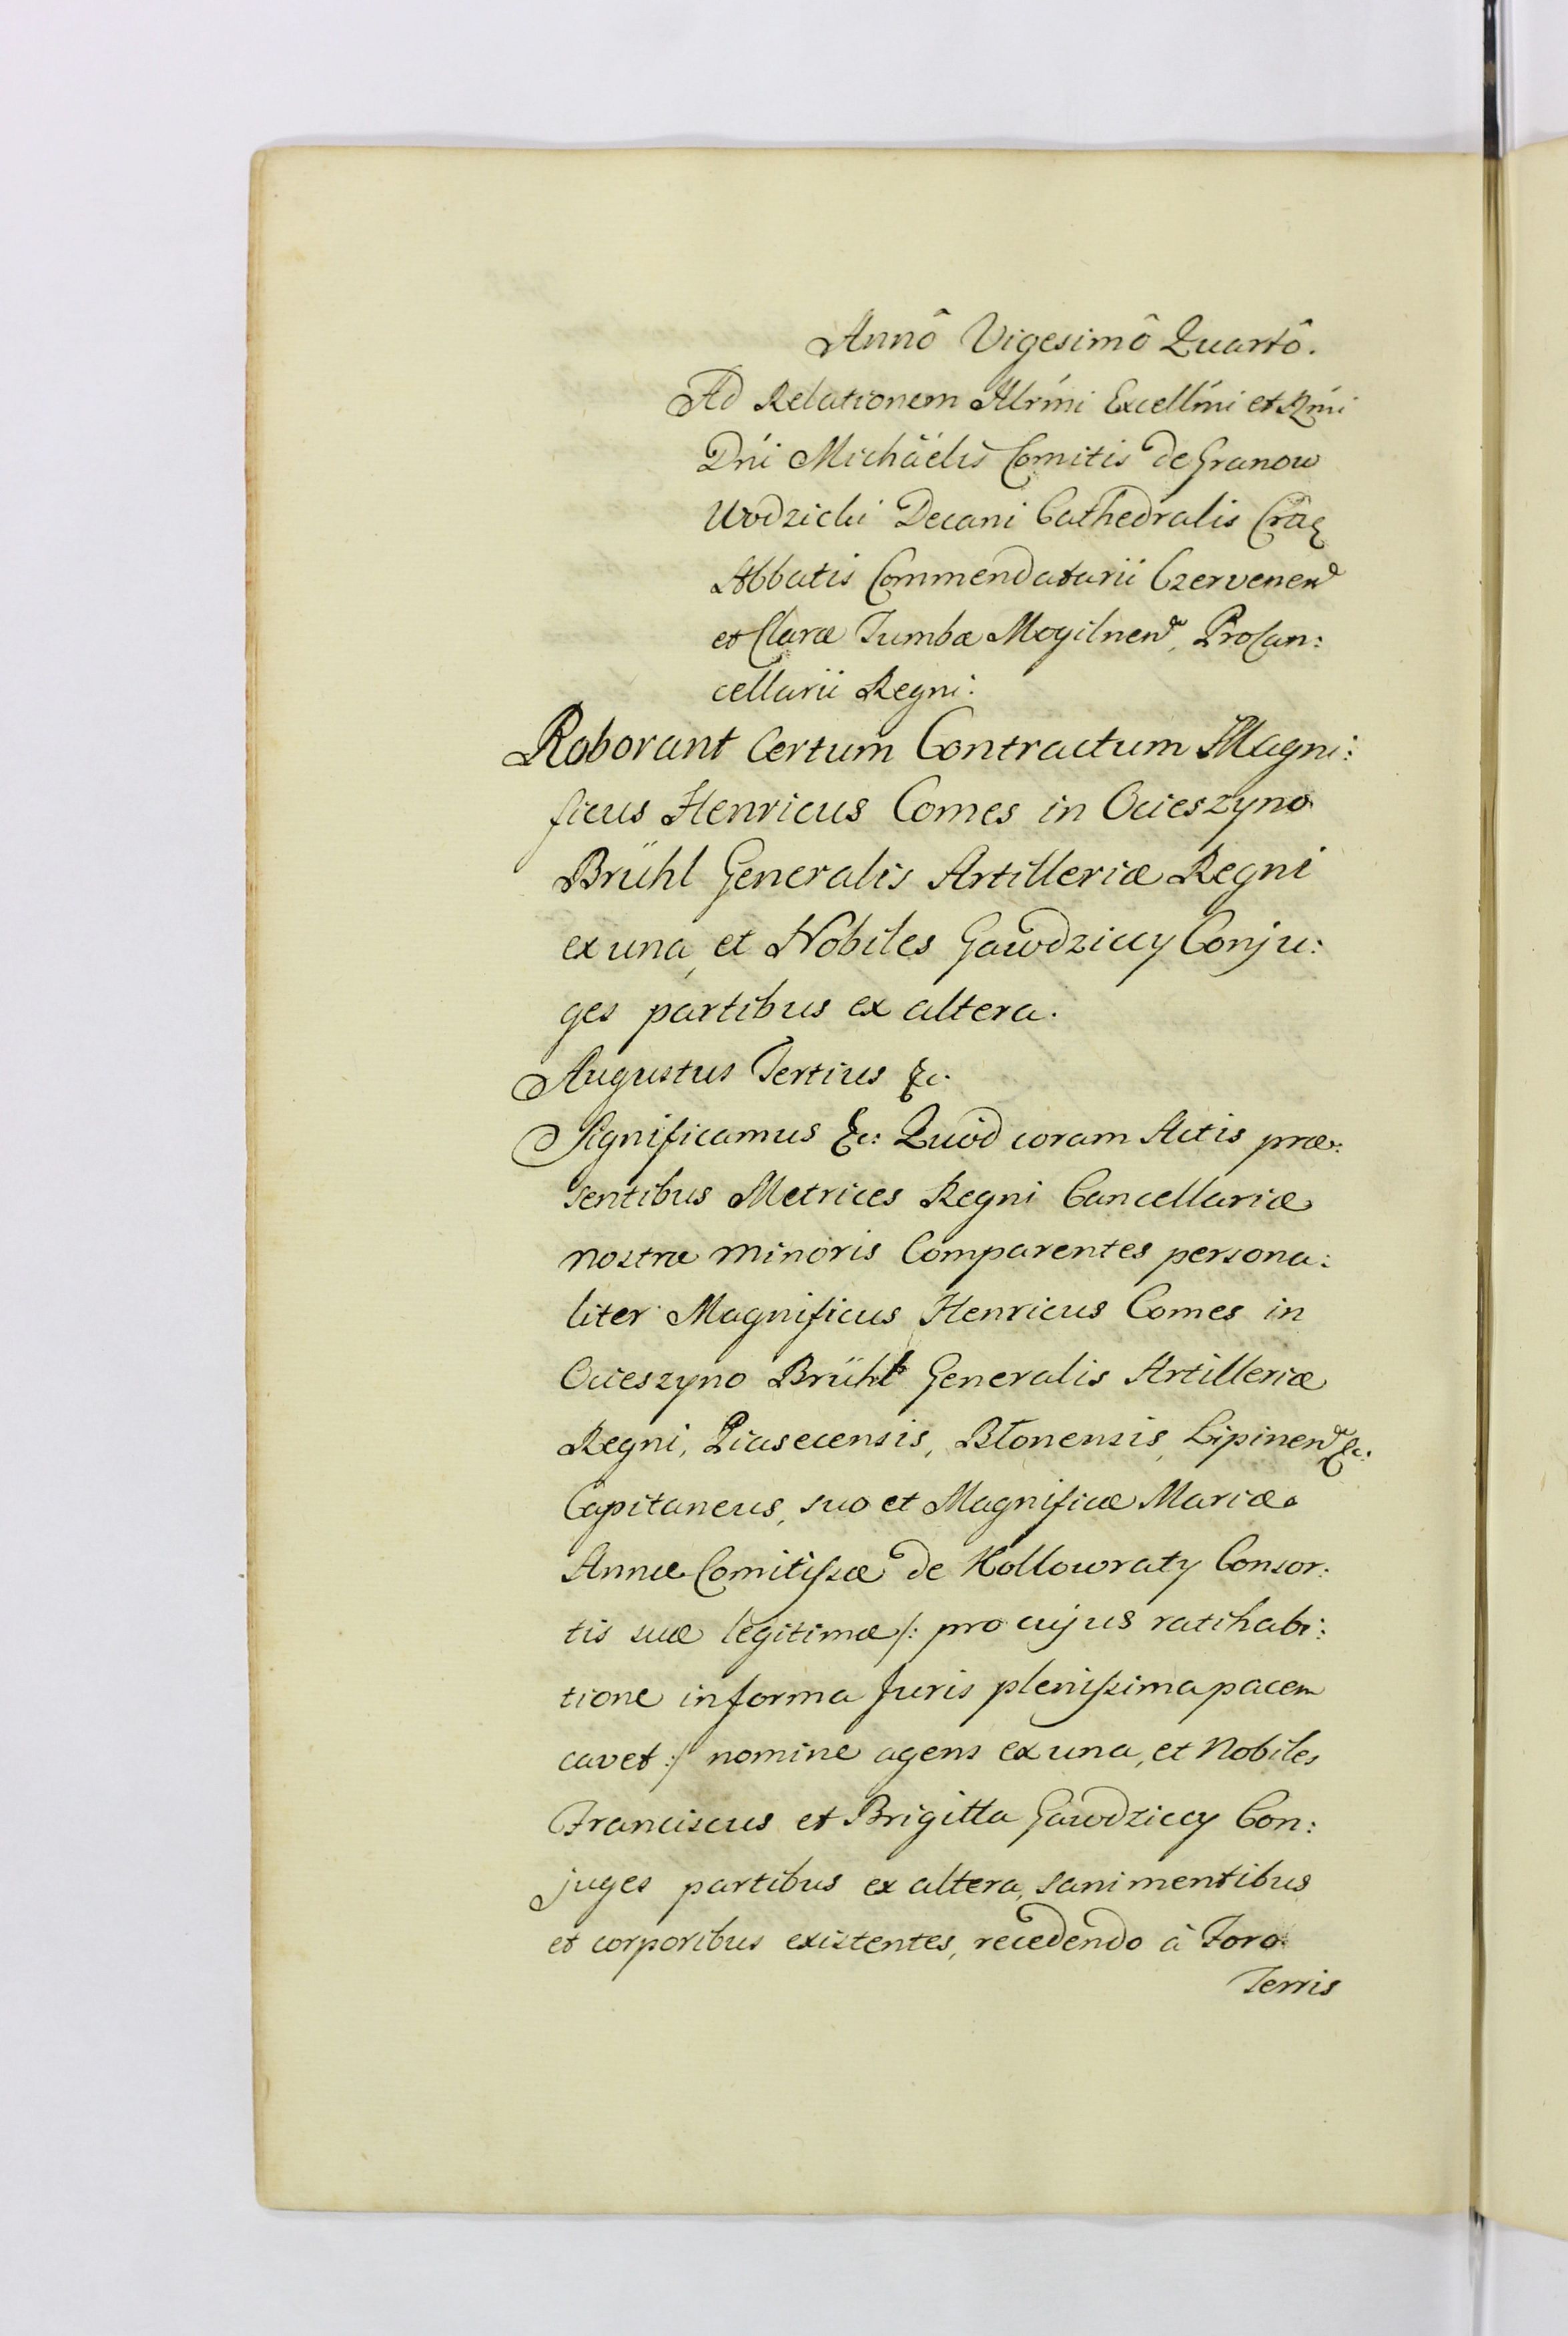 Annô Vigesimô Quartô.
Ad Relationem Illrm̃i Excellm̃i et Rm̃i
Dn̄i Michäelis Comitis de Granow
Wodzicki Decani Cathedralis Crac
Abbatis Commendatarii Czervenen
et Claræ Tumbæ Mogilnen, ProCan:
cellarii Regni:
Roborant Certum Contractum Magni:
ficus Henricus Comes in Ocieszyno
Brühl Generalis Artilleriæ Regni
ex una, et Nobiles Gawdziccy Conju:
ges partibus ex altera.
Augustus Tertius &c.
Significamus &c: Quòd coram Actis præ:
sentibus Metrices Regni Cancellariæ
nostræ minoris Comparentes persona:
liter Magnificus Henricus Comes in
Ocieszyno Brühl Generalis Artilleriæ
Regni, Piasecensis, Błonensis, Lipinen &c.
Capitaneus, suo et Magnificæ Mariæ
Annæ Comitissæ de Kollowraty Consor:
tis suæ legitimæ /: pro cujus ratihabi:
tione in forma Juris plenissima pacem
cavet :/ nomine agens ex una, et Nobiles
Franciscus et Brigitta Gawdziccy Con:
juges partibus ex altera, sani mentibus
et corporibus existentes, recedendo à Foro
Terris